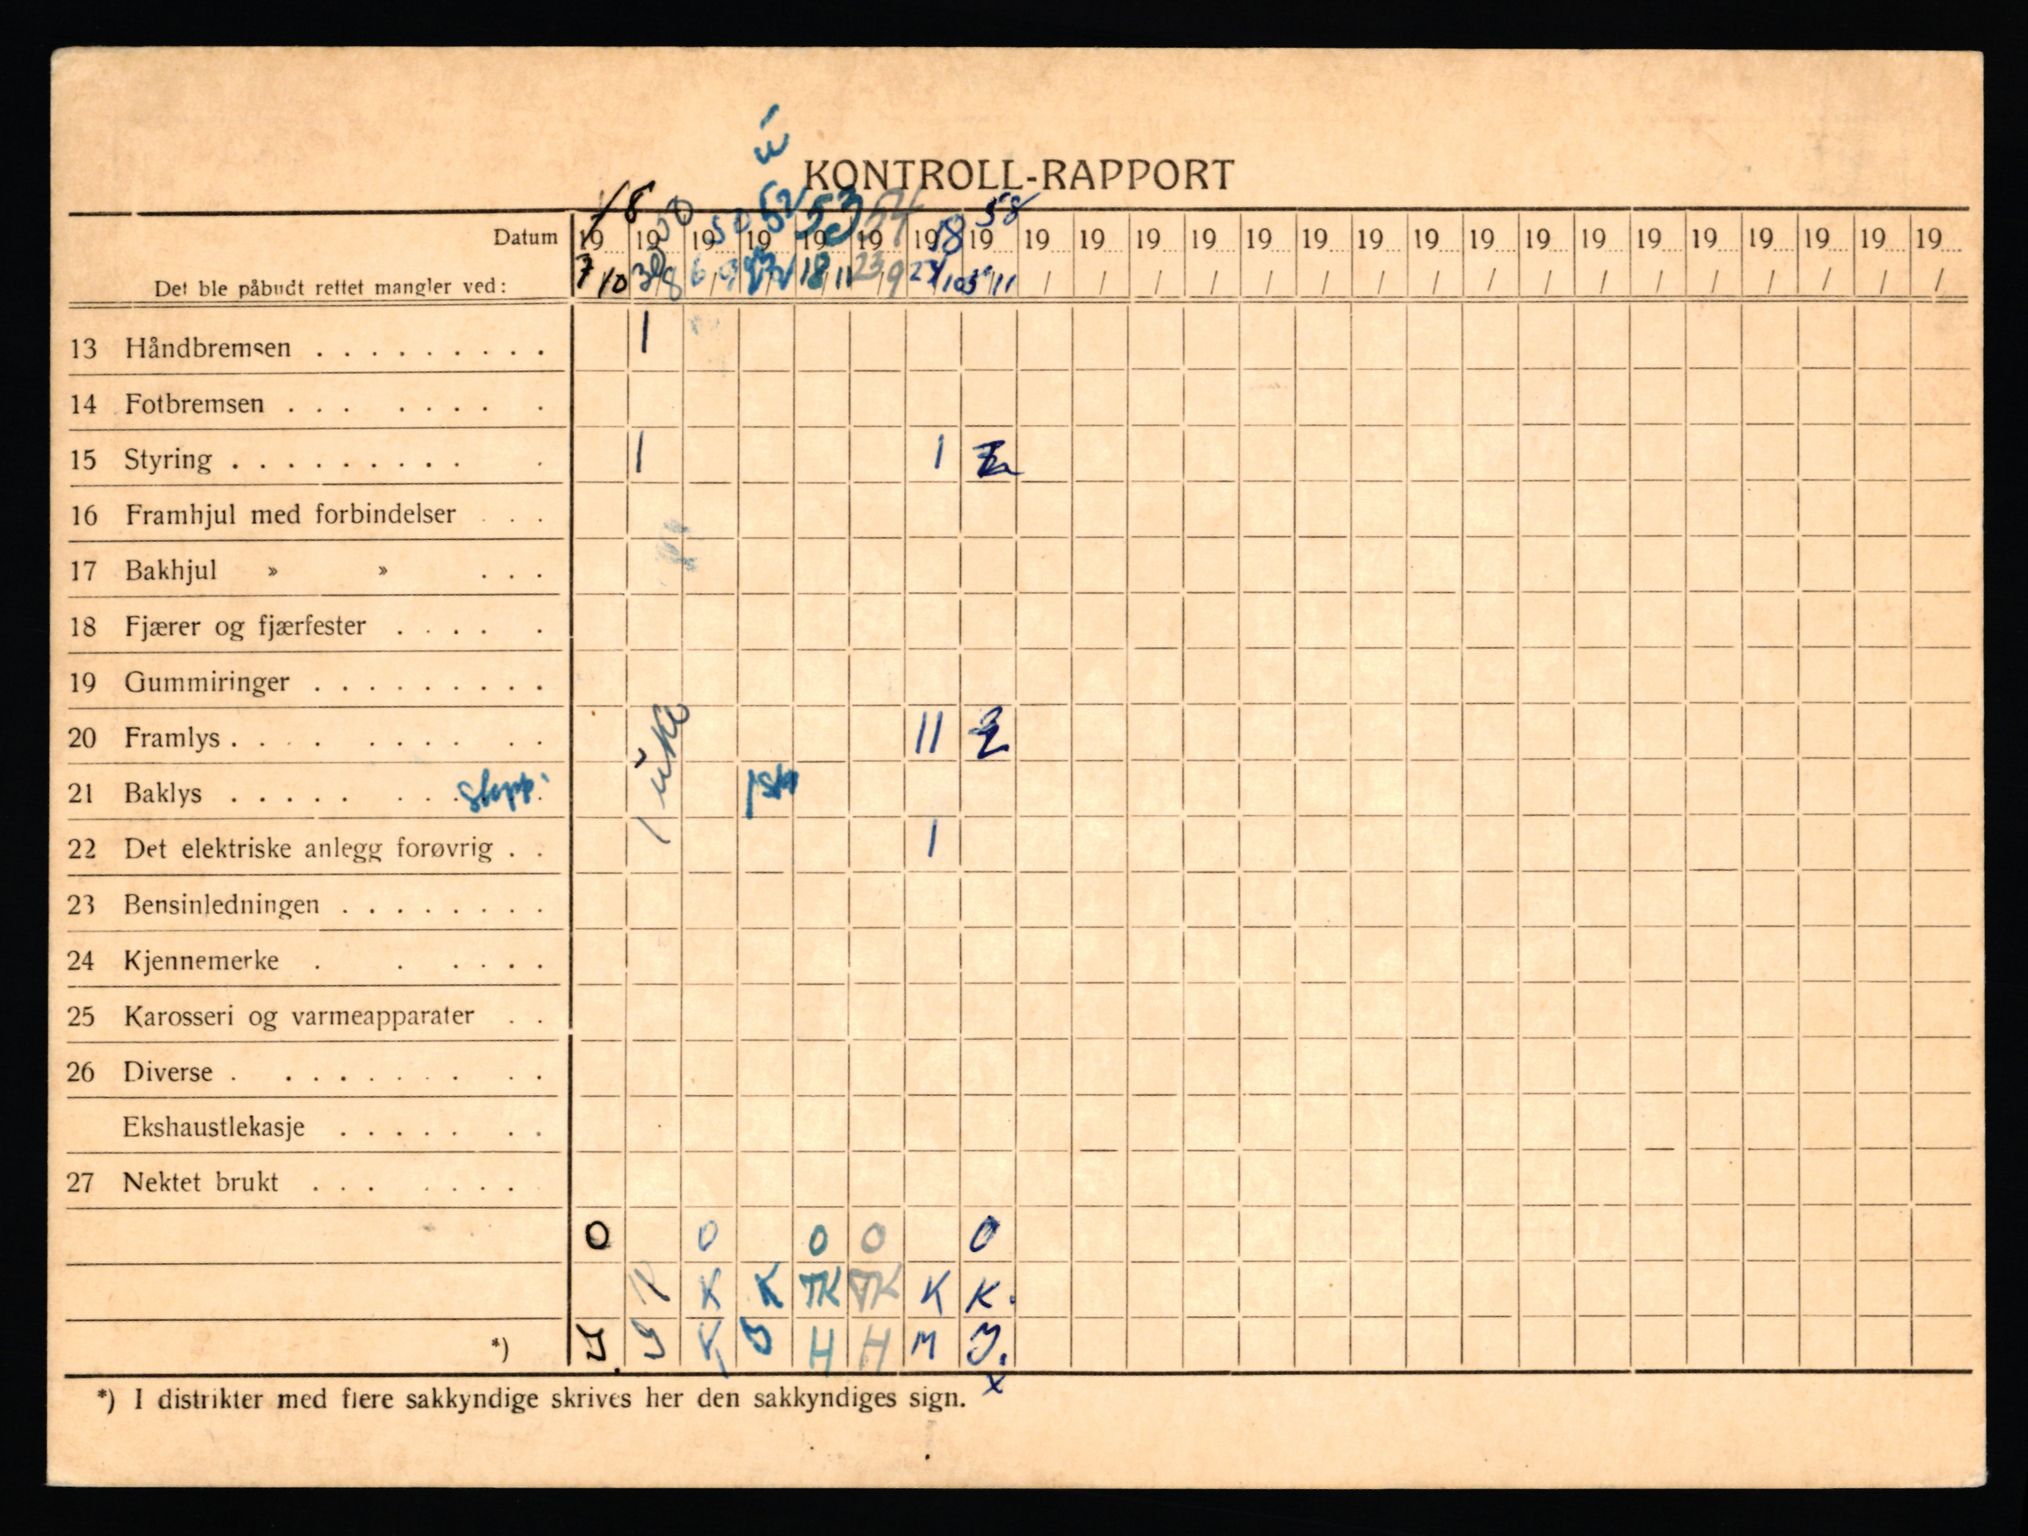 KONTROLL-RAPPORT
48 50 50 52 53 54 58 58
Datum 19 19 19 19 19 19 19 19 19 19 19 19 19 19 19 19 19 19 19 19 19 19 19 19 19
Det ble påbudt rettet mangler ved: 7/10 30/8 6/9 18/11 23/9 23/10 5/11 / / / / / / / / / / / / / / / / /
13 Håndbremsen . . . . . . . . . 1
14 Fotbremsen . . . . . . . .
15 Styring . . . . . . . . . . 1 1
16 Framhjul med forbindelser . . .
17 Bakhjul » » . . .
18 Fjærer og fjærfester . . . . .
19 Gummiringer . . . . . . . . .
20 Framlys . . . . . . . . . . 11 2
21 Baklys . . . . . . . . stopp. 1 uke
22 Det elektriske anlegg forøvrig . . 1
23 Bensinledningen . . . . . . . .
24 Kjennemerke . . . . . .
25 Karosseri og varmeapparater . .
26 Diverse . . . . . . . . . .
Ekshaustlekasje . . . . . . .
27 Nektet brukt . . . . . . .
0 0 0 0 0
K K TK TK K K.
*) J. J K J H H M J.
x
*) I distrikter med flere sakkyndige skrives her den sakkyndiges sign.